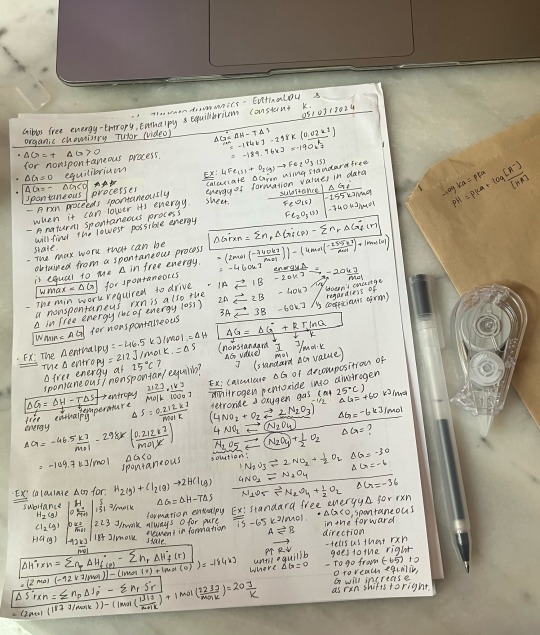 Thermodynamics - Enthalpy &
Gibbs free energy-Entropy, Enthalpy & Equilibrium Constant K.
organic chemistry Tutor (video)
05/03/2024
• ΔG = + ΔG > 0
for nonspontaneous process.
• ΔG = 0 equilibrium
• ΔG = - ΔG<0
spontaneous processes
- A rxn proceeds spontaneously
when it can lower it energy.
- A natural spontaneous process
will find the lowest possible energy
state.
- The max work that can be
obtained from a spontaneous process
is equal to the Δ in free energy.
Wmax = ΔG for spontaneous
- The min work required to drive
a nonspontaneous rxn is also the
Δ in free energy (bc of energy loss)
Wmin = ΔG for nonspontaneous
• EX: The Δenthalpy = -46.5 kJ/mol = ΔH
The Δentropy = 212 J/molk. = ΔS
Δ free energy at 25°C?
spontaneous/nonspontan/equilib?
ΔG = ΔH - TΔS → entropy
free energy enthalpy temperature
ΔS = 0.212 kJ/molk
ΔG = -46.5 kJ/mol - 298k (0.212 kJ/molk)
= -109.7 kJ/mol ΔG<0
spontaneous
EX: Calculate ΔG for: H2(g) + Cl2(g) → 2HCl(g)
substance H S
ΔG = ΔH - TΔS
H2(g) 0 kJ/mol 131 J/molk
formation enthalpy
Cl2(g) 0 kJ/mol 223 J/molk
always 0 for pure
element in formation
HCl(g) -92 kJ/mol 187 J/molk
state
ΔH°rxn = Σnp ΔHf(p) - Σnr ΔHf(r)
= (2mol (-92 kJ/mol)) - (1mol(0) + 1mol(0)) = -184kJ
ΔS°rxn = Σnp ΔSp - Σnr Sr
= (2mol (187 J/molk)) - (1mol (131 J/molk) + 1mol (223 J/molk)) = 20 J/K
ΔG = ΔH - TΔS
= -184kJ - 298k (0.02kJ)
= -189.96kJ = -190kJ
EX: 4Fe(s) + O2(g) → Fe2O3(s)
calculate ΔGrxn using standard free
energy of formation values in data
sheet.
substance ΔGf
FeO(s) -255 kJ/mol
Fe2O3(s) -740 kJ/mol
ΔG°rxn = Σnp ΔGf(p) - Σnr ΔGf(r)
= (2mol(-740kJ/mol)) - (4mol(-255kJ/mol) + 1mol(0))
= -460kJ
energyΔ
1A ⇌ 1B -20kJ = -20kJ/mol
2A ⇌ 2B -40kJ doesn't change
regardless of
3A ⇌ 3B -60kJ coefficients of rxn)
ΔG = ΔG° + RTlnQ
(nonstandard J/mol J/mol·k
ΔG value)
J (standard ΔG value)
EX: calculate ΔG of decomposition of
dinitrogen pentoxide into dinitrogen
tetroxide & oxygen gas (at 25°C)
(4NO2 + O2 ⇌ 2N2O5) -1/2 ΔG = +60 kJ/mol
4NO2 ⇌ N2O4 ΔG = -6kJ/mol
N2O5 ⇌ N2O4 + 1/2 O2 ΔG = ?
solution:
1 N2O5 ⇌ 2NO2 + 1/2 O2 ΔG = -30
4NO2 ⇌ N2O4 ΔG = -6
N2O5 ⇌ N2O4 + 1/2 O2 ΔG = -36
EX: standard free energy Δ for rxn
is -65 kJ/mol.
A ⇌ B
until equilib
where ΔG=0
• ΔG<0, spontaneous
in the forward
direction
- tells us that rxn
goes to the right
- To go from (-65) to
0 to reach equilib,
G will increase
as rxn shifts to right.
-log Ka = pka
pH = pka + log [A-]
[HA]